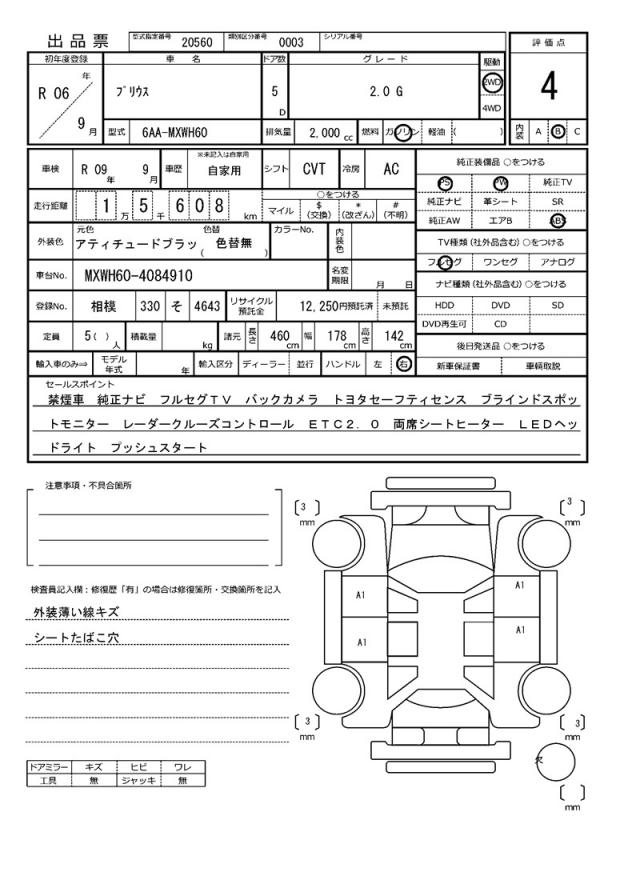 出品票 型式指定番号 20560 類別区分番号 0003 シリアル番号
評価点
4
内装 A B C
初年度登録 車名 ドア数 グレード 駆動
R 06 年 9 月
ﾌﾟﾘｳｽ 5 D 2.0 G 2WD
4WD
型式 6AA-MXWH60 排気量 2,000 cc 燃料 ガソリン 軽油 ( )
車検 R 09 年 9 月 車歴 ※未記入は自家用 自家用 シフト CVT 冷房 AC
走行距離 1 万 5 千 6 0 8 km
○をつける
マイル $(交換) *(改ざん) #(不明)
外装色 元色 アティチュードブラッ 色替 ( 色替無 ) カラーNo. 内装色
車台No. MXWH60-4084910 名変期限 月 日
登録No. 相模 330 そ 4643 リサイクル預託金 12,250円預託済 未預託
定員 5( ) 人 積載量 kg 諸元 長さ 460 cm 幅 178 cm 高さ 142 cm
輸入車のみ⇒ モデル年式 年 輸入区分 ディーラー 並行 ハンドル 左 右
純正装備品 ○をつける
PS PW 純正TV
純正ナビ 革シート SR
純正AW エアB ABS
TV種類 (社外品含む) ○をつける
フルセグ ワンセグ アナログ
ナビ種類 (社外品含む) ○をつける
HDD DVD SD
DVD再生可 CD
後日発送品 ○をつける
新車保証書 車輌取説
セールスポイント
禁煙車 純正ナビ フルセグTV バックカメラ トヨタセーフティセンス ブラインドスポッ
トモニター レーダークルーズコントロール ETC2.0 両席シートヒーター LEDヘッ
ドライト プッシュスタート
注意事項・不具合箇所
検査員記入欄：修復歴「有」の場合は修復箇所・交換箇所を記入
外装薄い線キズ
シートたばこ穴
ドアミラー キズ ヒビ ワレ
工具 無 ジャッキ 無
[ 3 ] mm
[ 3 ] mm
A1
A1
A1
A1
[ 3 ] mm
[ 3 ] mm
欠
[ ] mm